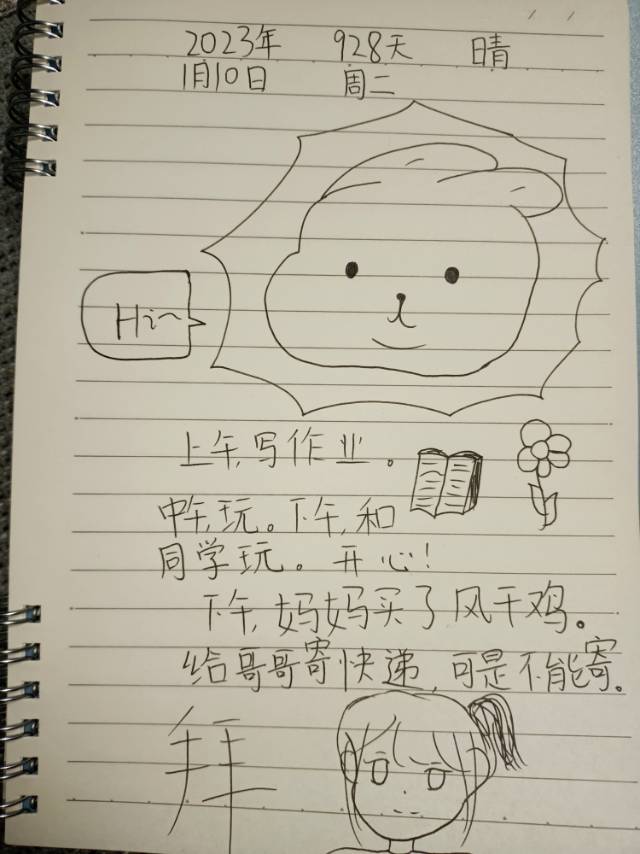 2023年 928天 晴
1月10日 周二
Hi~
上午,写作业。
中午,玩。下午,和
同学玩。开心!
下午,妈妈买了风干鸡。
给哥哥寄快递,可是不能寄。
拜